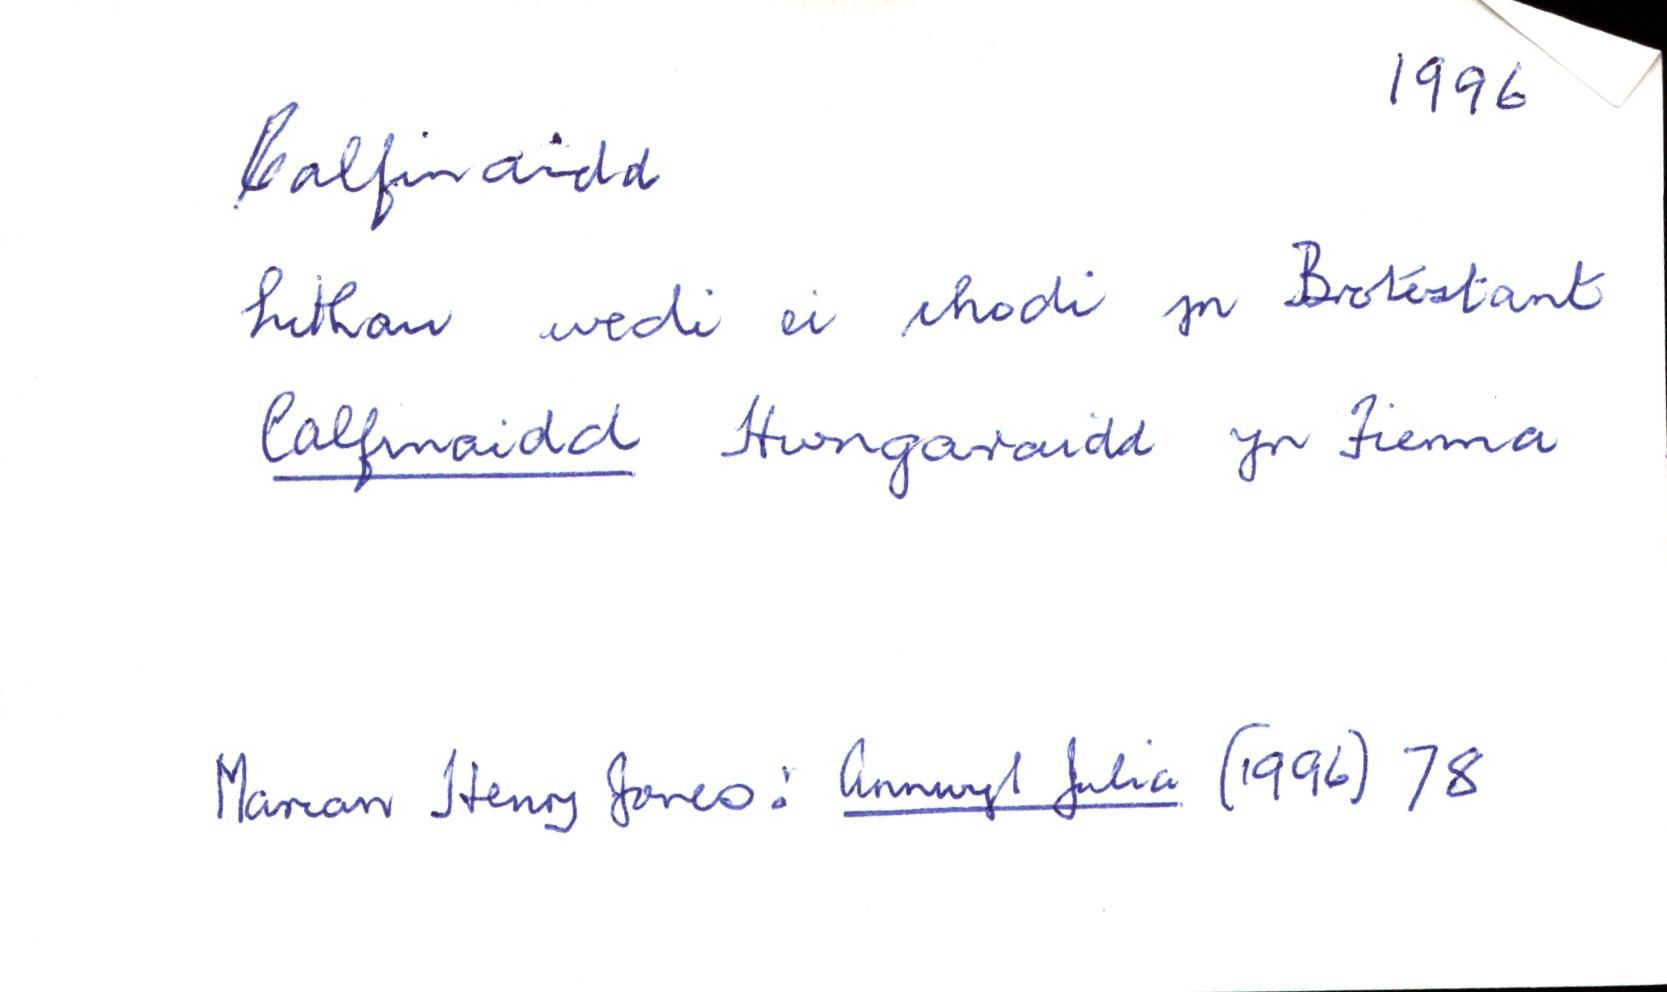 1996
Calfinaidd
hithau wedi ei rhodi yn Brotestant
Calfinaidd Hwngaraidd yn Fienna
Marian Henry Jones: Annwyl Julia (1996) 78